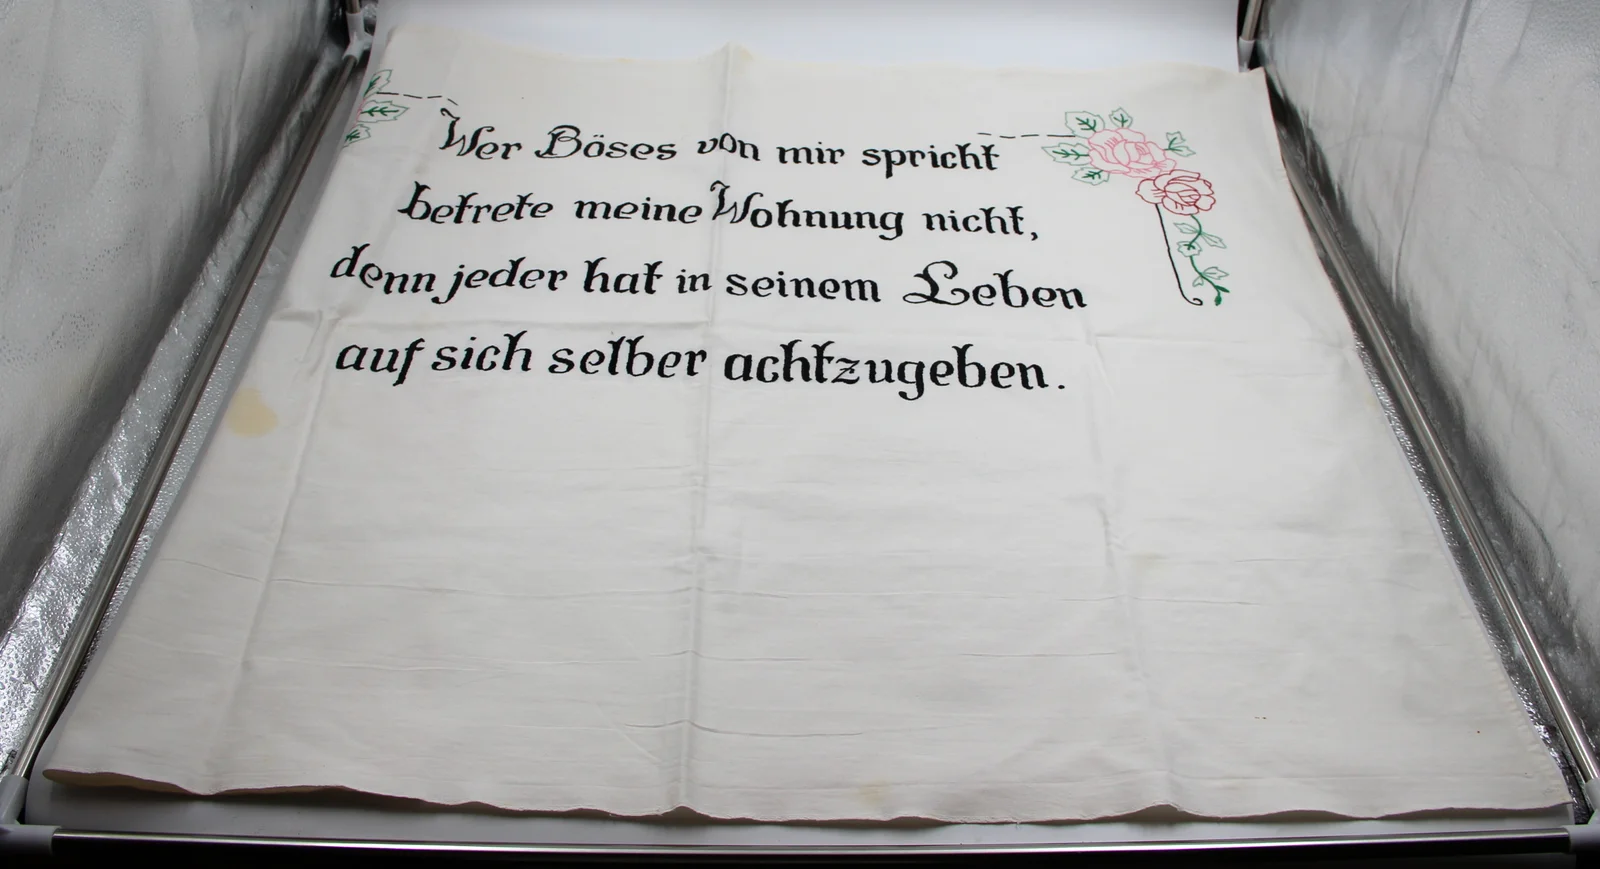 Wer Böses von mir spricht
betrete meine Wohnung nicht,
denn jeder hat in seinem Leben
auf sich selber achtzugeben.